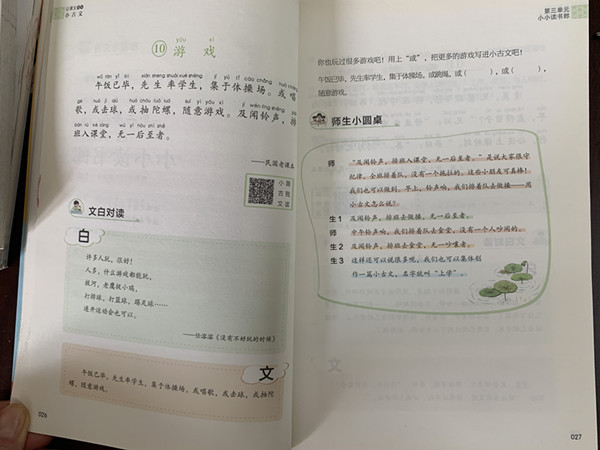 小古文
yóu xì
⑩ 游戏
午饭已毕，先生率学生，集于体操场。或唱
歌，或去球，或抽陀螺，随意游戏。及闻铃声，排
班入课堂，无一后至者。
——民国老课本
文白对读
白
许多人玩，很好！
人多，什么游戏都能玩。
拔河，老鹰捉小鸡，
打排球、打篮球、踢足球……
连开运动会也可以。
——任溶溶《没有不好玩的时候》
文
午饭已毕，先生率学生，集于体操场，或唱歌，或去球，或抽陀
螺，随意游戏。
026
第三单元
小小读书郎
你也玩过很多游戏吧！用上“或”，把更多的游戏写进小古文吧！
午饭已毕，先生率学生，集于体操场，或跳绳，或（ ），或（ ），
随意游戏。
师生小圆桌
师 “及闻铃声，排班入课堂，无一后至者。”是说大家很守
纪律，全班排着队，没有一个拖拉的。这些小朋友可真棒！
我们也可以做到。早上，铃声响，我们排着队去做操——用
小古文怎么说？
生1 及闻铃声，排班去做操，无一后至者。
师 中午铃声响，我们排着队去食堂，没有一个人吵闹的。
生2 及闻铃声，排班去食堂，无一吵嚷者。
生3 这样还可以说很多呢，我们也可以集体创
作一篇小古文，名字就叫“上学”。
027